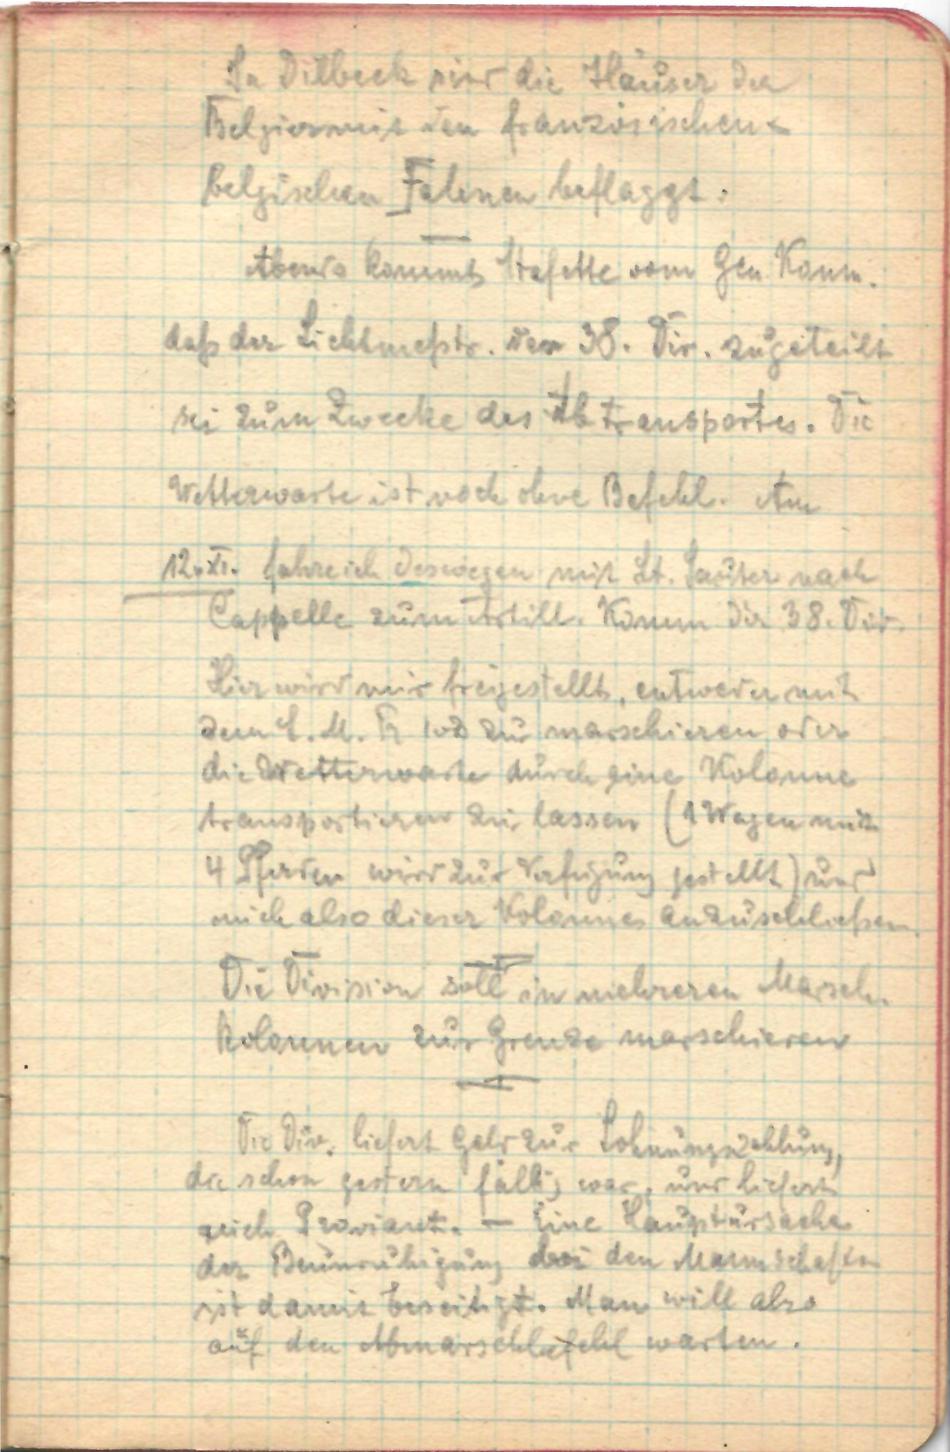 In Dilbeck sind die Häuser der
Belgier mit den französischen &
Belgischen Fahnen beflaggt.
Abends kommt Stafette vom Gen. Komm.
daß der Lichtmeßtr. der 38. Div. zugeteilt
sei zum Zwecke des Abtransportes. Die
Wetterwarte ist noch ohne Befehl. Am
12. XI. fahre ich deswegen mit Lt. Sauter nach
Cappelle zum Artill. Komm der 38. Div.
Hier wird mir freigestellt, entweder mit
dem L. M. Tr 108 zu marschieren oder
die Wetterwarte durch eine Kolonne
transportieren zu lassen (1 Wagen mit
4 Pferden wird zur Verfügung gestellt) und
mich also dieser Kolonne anzuschließen.
Die Division soll in mehreren Marsch-
kolonnen zur Grenze marschieren
Die Div. liefert Geld zur Löhnungszahlung,
die schon gestern fällig war, und liefert
auch Proviant. — Eine Hauptursache
der Beunruhigung bei den Mannschaften
ist damit beseitigt. Man will also
auf den Abmarschbefehl warten.